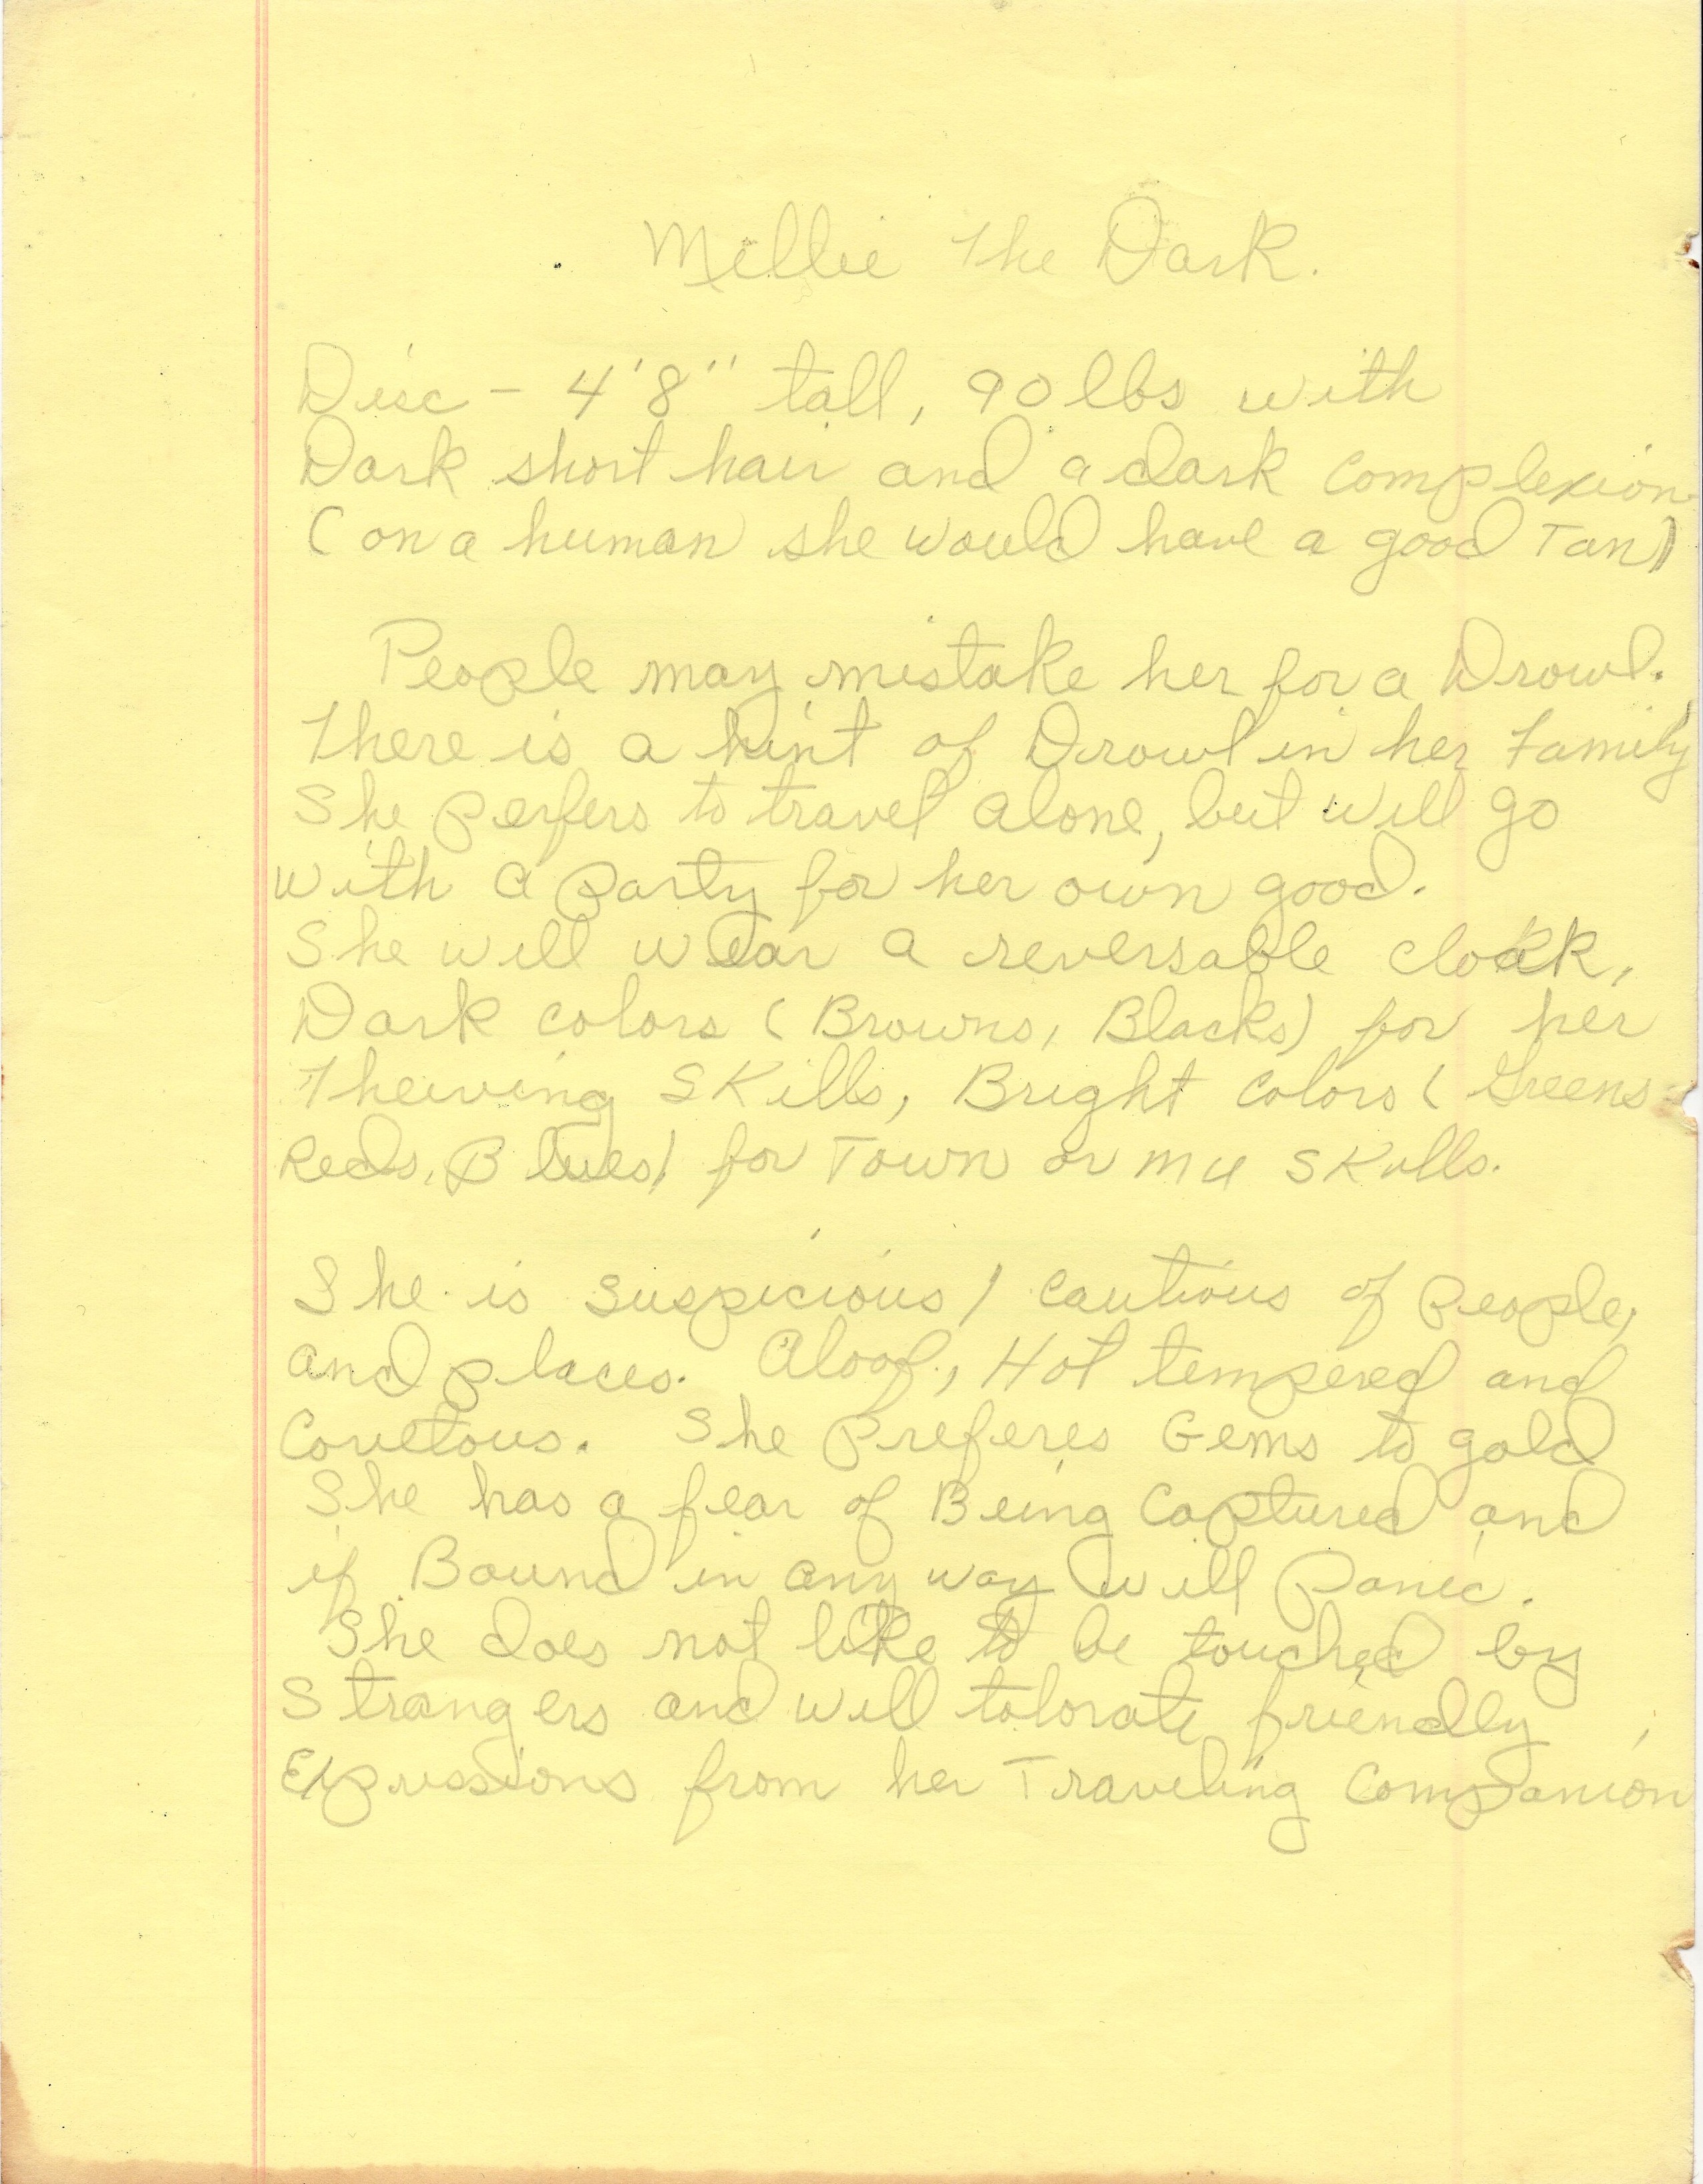 Mellie The Dark.
Disc - 4'8" tall, 90 lbs with
Dark short hair and a dark complexion
(on a human she would have a good Tan)
People may mistake her for a Drowl.
There is a hint of Drowl in her family
She perfers to travel alone, but will go
with a party for her own good.
She will wear a reversable cloak,
Dark colors (Browns, Blacks) for her
Theiving Skills, Bright colors (Greens
Reds, Blues) for Town or mu skills.
She is suspicious / cautious of people,
and places. Aloof, Hot tempered and
Covetous. She Preferes Gems to gold
She has a fear of Being Captured and
if Bound in any way will Panic.
She does not like to be touched by
Strangers and will tolorate friendly
Expressions from her Traveling Companion